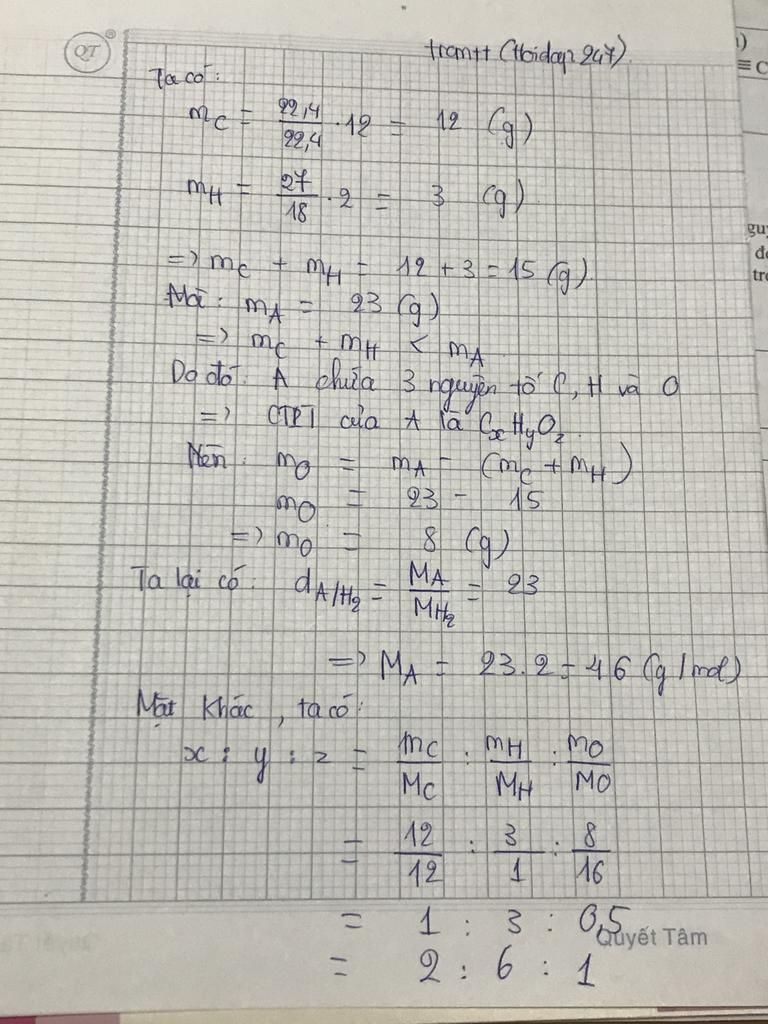 QT
trcmtt (Hoidap247).
)
≡ C
Ta có:
m_C = 22,4/22,4 . 12 = 12 (g)
m_H = 27/18 . 2 = 3 (g)
=> m_C + m_H = 12 + 3 = 15 (g).
Mà: m_A = 23 (g)
=> m_C + m_H < m_A
Do đó: A chứa 3 nguyên tố C, H và O
=> CTPT của A là C_xH_yO_z.
Nên: m_O = m_A - (m_C + m_H)
m_O = 23 - 15
=> m_O = 8 (g)
Ta lại có: d_A/H₂ = M_A/M_H₂ = 23
=> M_A = 23.2 = 46 (g/mol)
Mặt khác, ta có:
x : y : z = m_C/M_C : m_H/M_H : m_O/M_O
= 12/12 : 3/1 : 8/16
= 1 : 3 : 0,5
Quyết Tâm
= 2 : 6 : 1